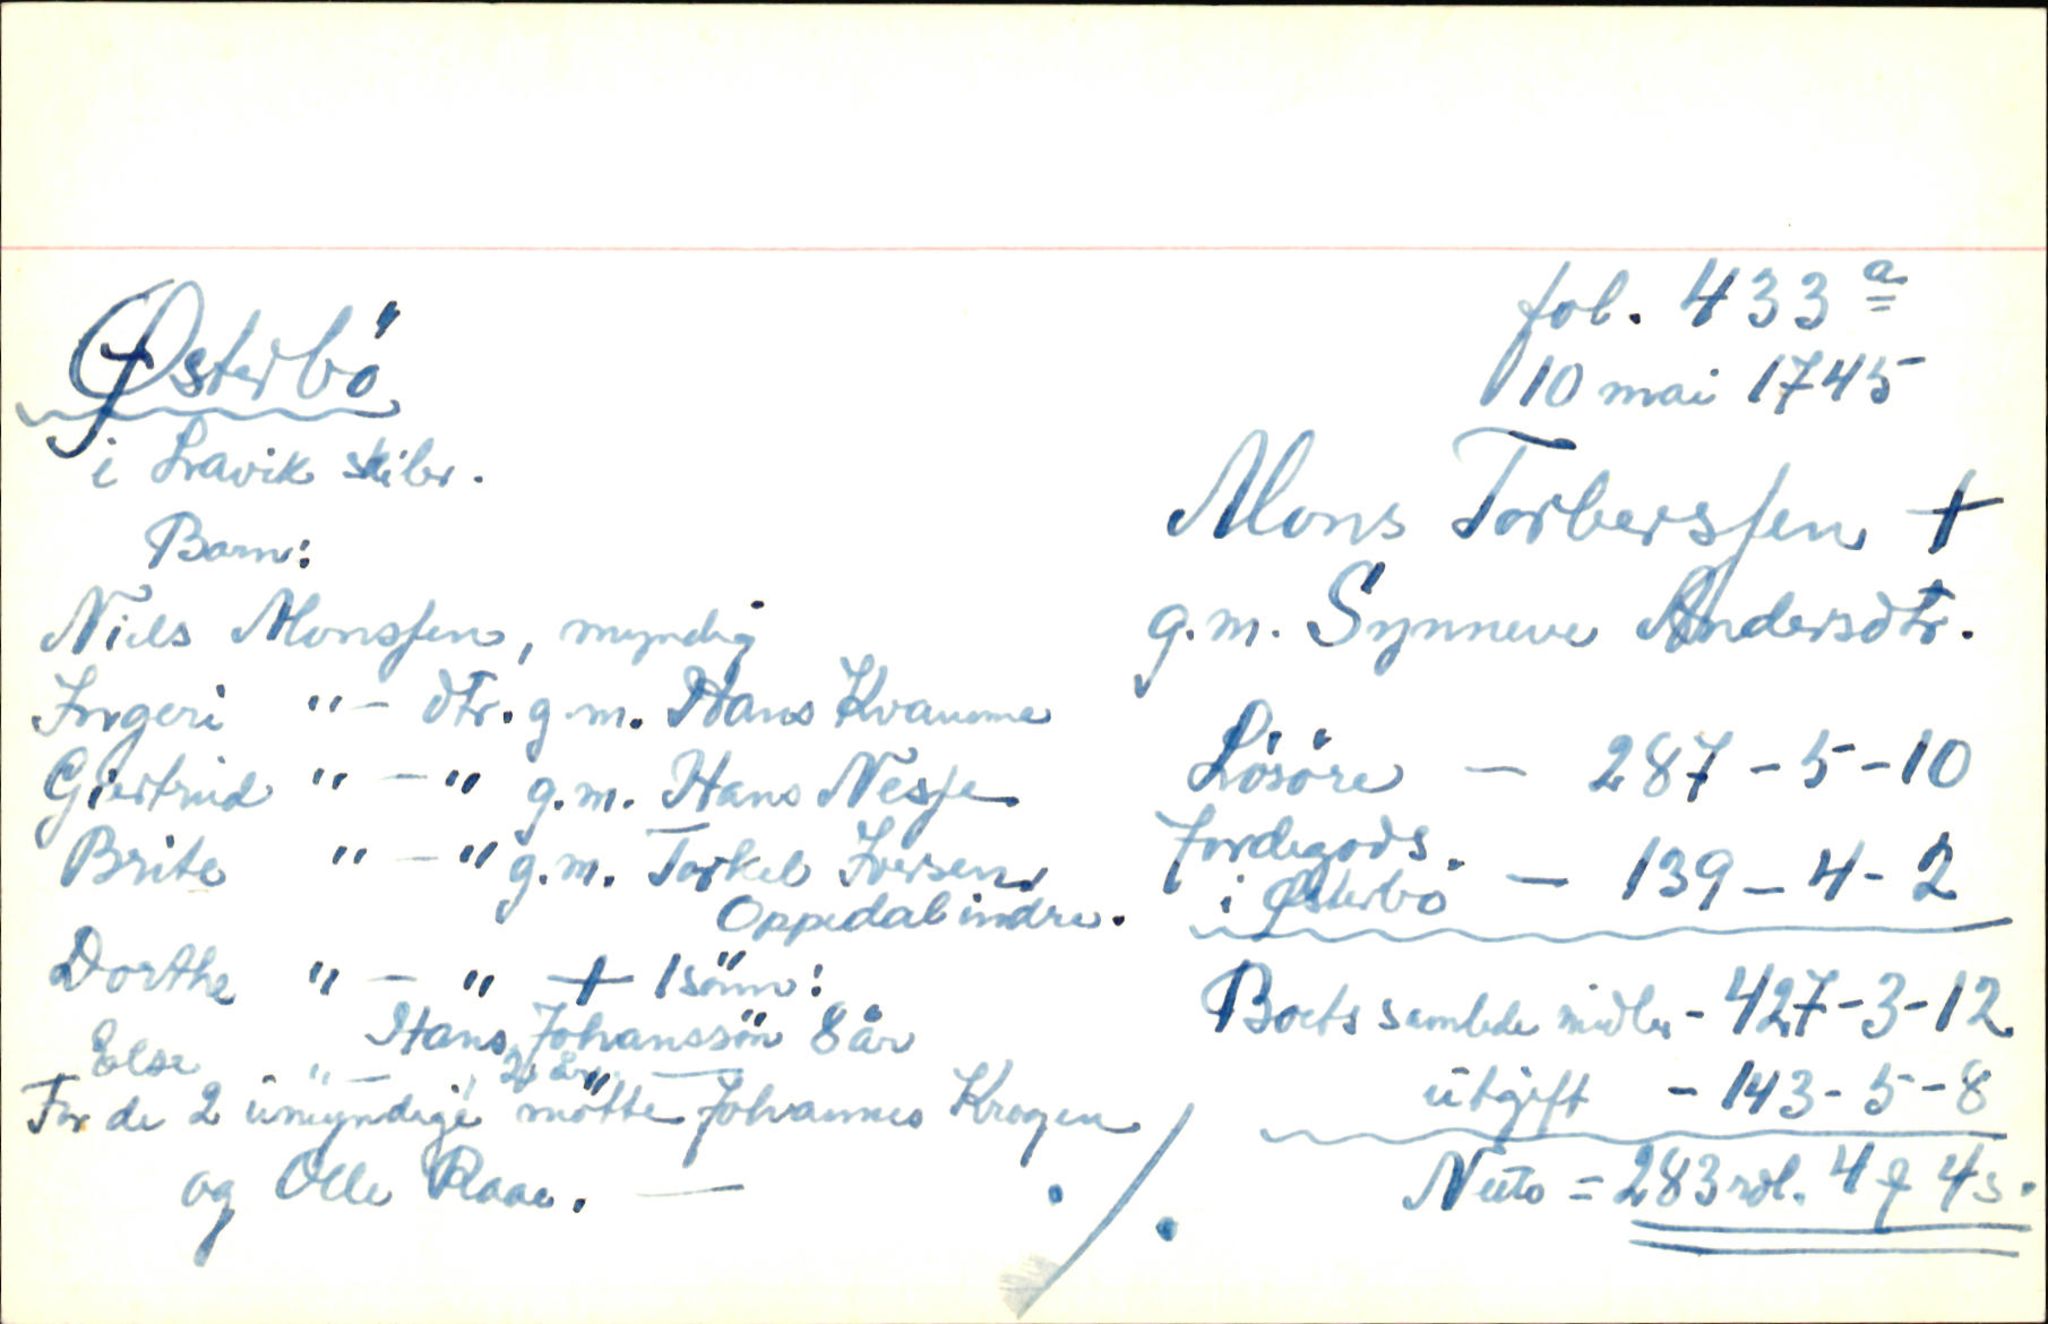 fol. 433 a
10 mai 1745
Østerbö
i Lavik skibr.
Mons Torberssen +
g.m. Synneve Andersdtr.
Barn:
Niels Monssen, myndig
Ingeri "- dtr. g.m. Hans Kvamme
Giertrud " - " g.m. Hans Nesje
Brite " - " g.m. Torkel Iversen
Oppedal indre.
Dorthe " - " + 1 sönn:
Hans Johanssön 8 år
Else " - " 24 år. —
For de 2 umyndige mötte Johannes Krogen
og Olle Raae. —
./.
Lösöre — 287-5-10
Jordegods.
i Østerbö — 139-4-2
Boets samlede midler - 427-3-12
utgift - 143-5-8
Netto = 283 rdl. 4 4 s.